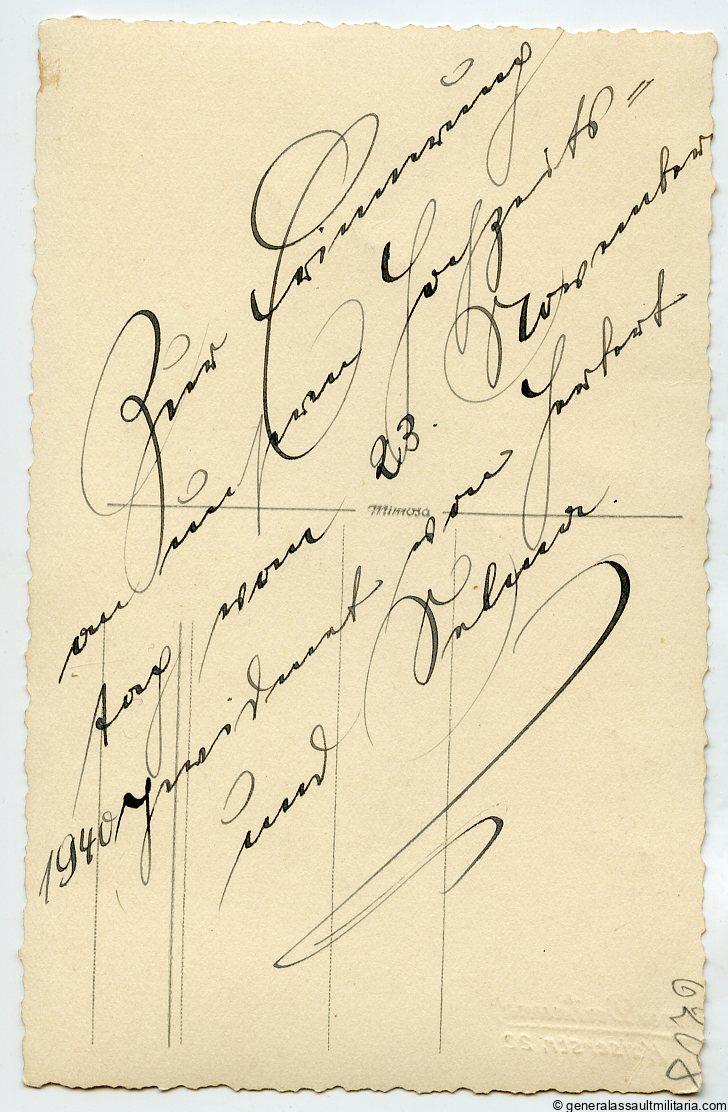 Zur Erinnerung
an unseren Hochzeits=
tag vom 23. November
1940 gewidmet von Herbert
und Selma.
Mimosa
Kaiserstr. 22
© generalassaultmilitaria.com